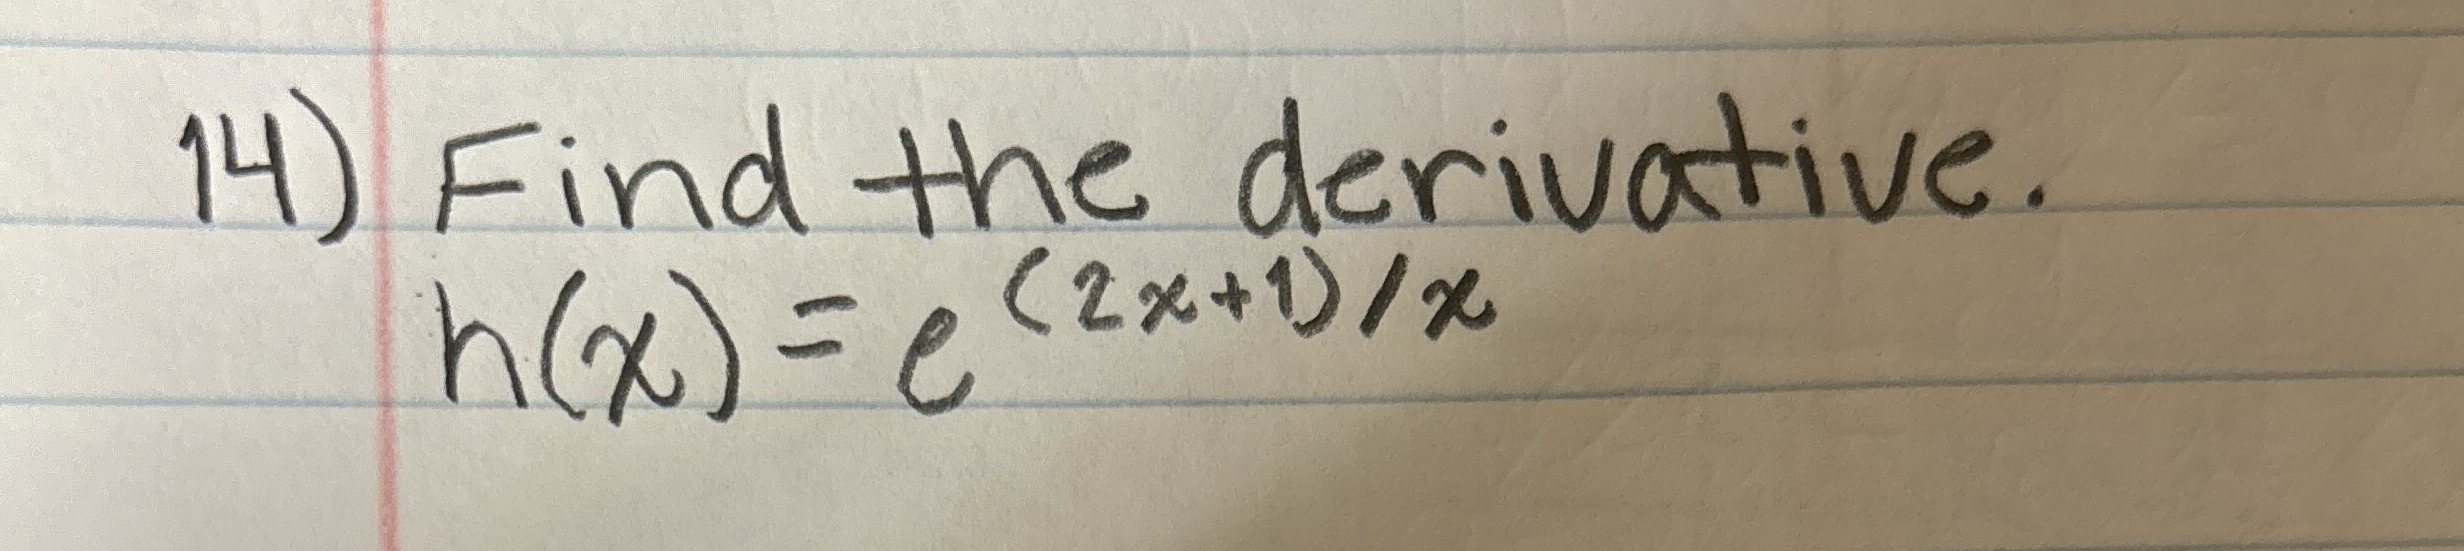 14) Find the derivative.
h(x) = e^(2x+1)/x